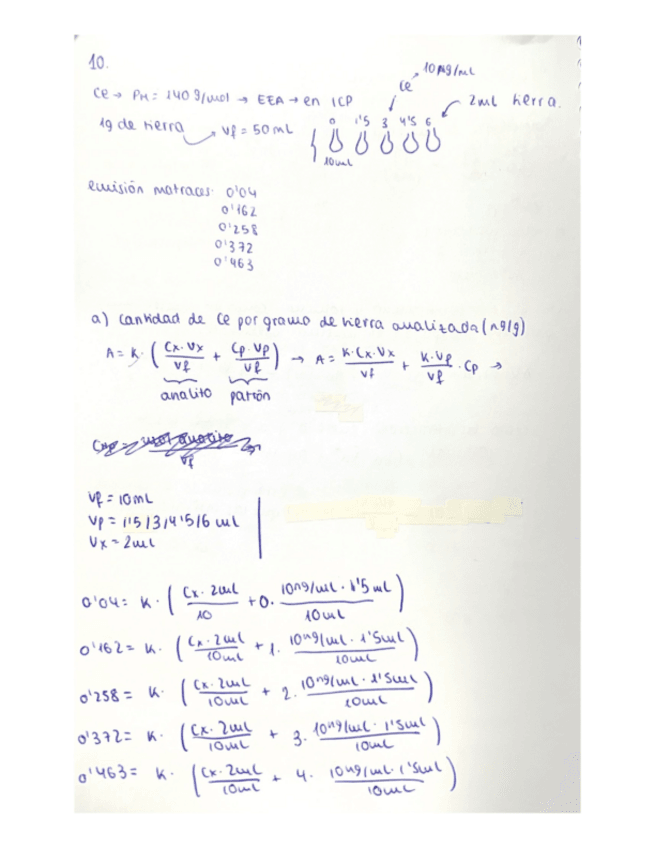 10.
10 ng/ml
Ce
Ce → PM = 140 g/mol → EEA → en ICP
2ml tierra.
1g de tierra → Vf = 50 mL
0 1'5 3 4'5 6
10mL
emisión matraces: 0'04
0'162
0'258
0'372
0'463
a) cantidad de Ce por gramo de tierra analizada (ng/g)
A = K · ( Cx·Vx / Vf + Cp·Vp / Vf ) → A = K·Cx·Vx / Vf + K·Vp / Vf · Cp →
analito patrón
Vf
Vf = 10mL
Vp = 1'5/3/4'5/6 mL
Vx = 2mL
0'04 = K · ( Cx · 2mL / 10 + 0 · 10ng/mL · 1'5 mL / 10mL )
0'162 = K · ( Cx · 2mL / 10mL + 1 · 10ng/mL · 1'5mL / 10mL )
0'258 = K · ( Cx · 2mL / 10mL + 2 · 10ng/mL · 1'5mL / 10mL )
0'372 = K · ( Cx · 2mL / 10mL + 3 · 10ng/mL · 1'5mL / 10mL )
0'463 = K · ( Cx · 2mL / 10mL + 4 · 10ng/mL · 1'5mL / 10mL )